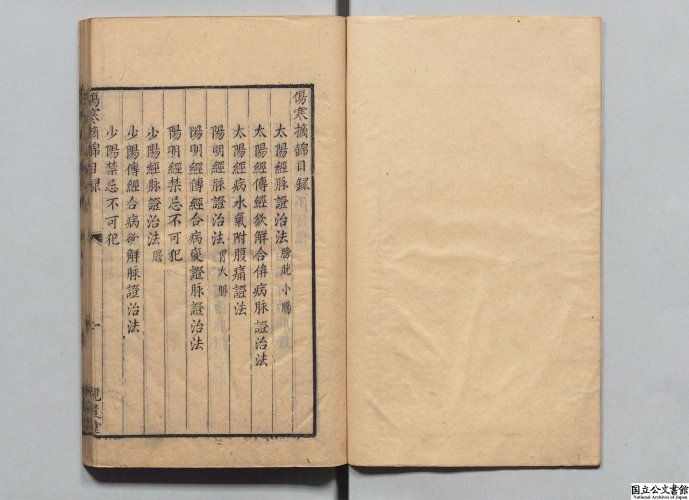 傷寒摘錦目録
太陽經脉證治法 膀胱 小腸
太陽經傳經欲解合併病脉證治法
太陽經病水氣附腹痛證法
陽明經脉證治法 胃 大腸
陽明經傳經合病變證脉證治法
陽明經禁忌不可犯
少陽經脉證治法 膽
少陽傳經合病欲解脉證治法
少陽禁忌不可犯
傷寒摘錦目録
一
堂
国立公文書館
National Archives of Japan